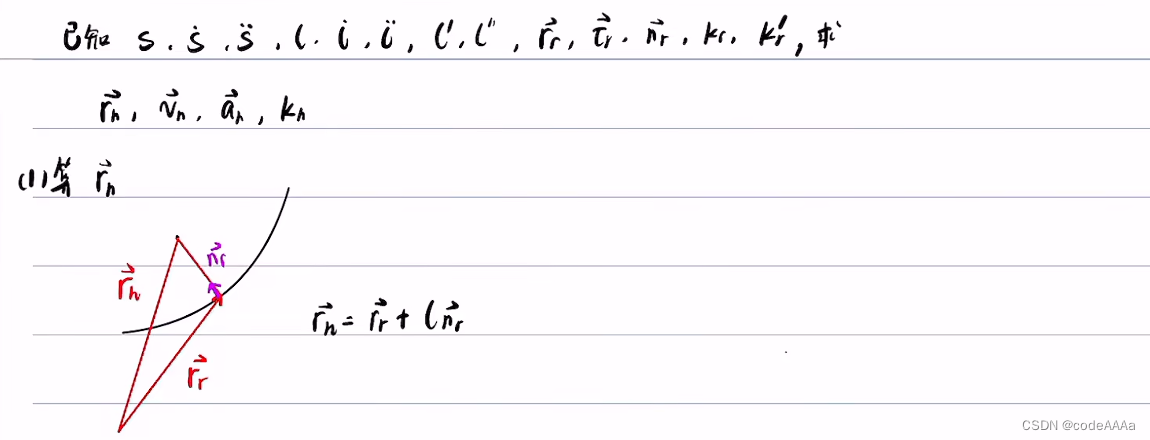 已知 s, ṡ, s̈, l, l̇, l̈, l', l'', r⃗r, τ⃗r, n⃗r, kr, kr', 求
r⃗h, v⃗h, a⃗h, kh
(1) 算 r⃗h
n⃗r
r⃗h
r⃗h = r⃗r + l n⃗r
r⃗r
CSDN @codeAAAa